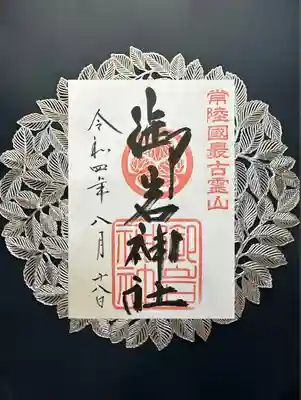 常陸國最古霊山
御岩神社
令和四年八月十八日